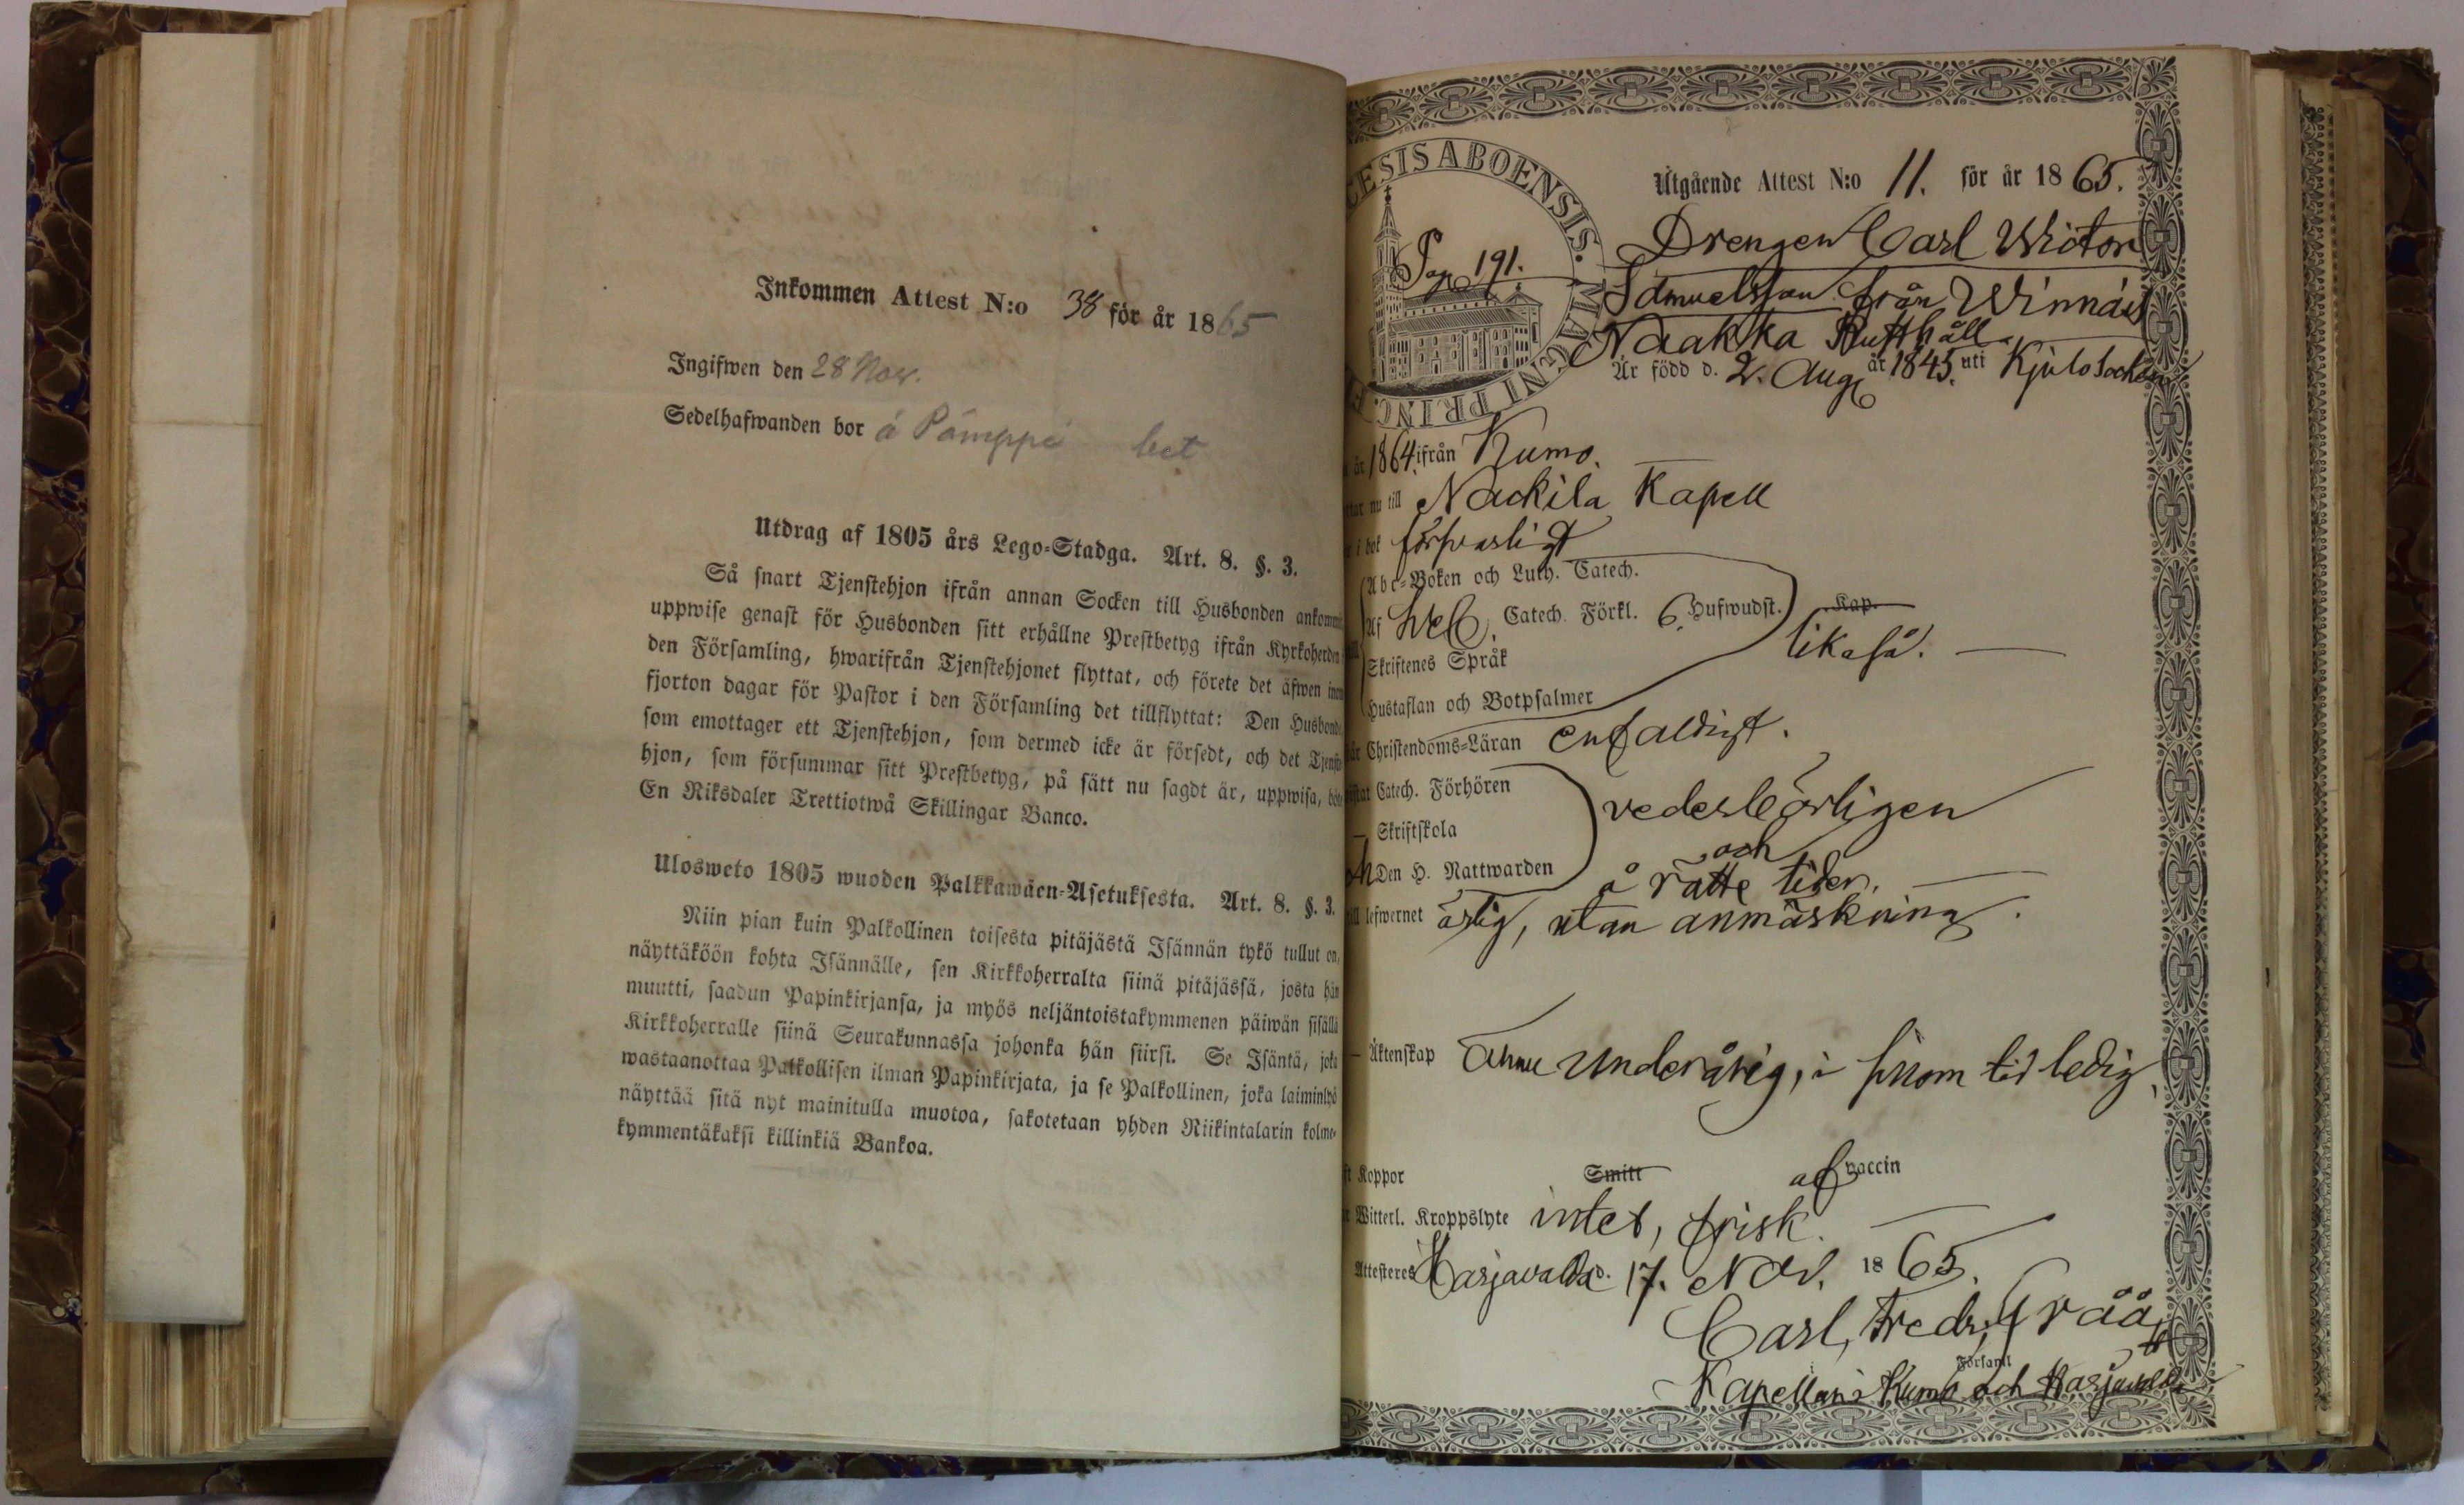 Inkommen Attest N:o 38 för år 1865
Ingifwen den 28 Nov.
Sedelhafwanden bor å Pämppä
Utdrag af 1805 års Lego-Stadga. Art. 8. §. 3.
Så snart Tjenstehjon ifrån annan Socken till Husbonden ankommit
uppwise genast för Husbonden sitt erhållne Prestbetyg ifrån Kyrkoherden
den Församling, hwarifrån Tjenstehjonet flyttat, och förete det äfwen inom
fjorton dagar för Pastor i den Församling det tillflyttat: Den Husbonde
som emottager ett Tjenstehjon, som dermed icke är försedt, och det Tjenste
hjon, som försummar sitt Prestbetyg, på sätt nu sagdt är, uppwisa, böte
En Riksdaler Trettiotwå Skillingar Banco.
Ulosweto 1805 wuoden Palkkawäen-Asetuksesta. Art. 8. §. 3.
Niin pian kuin Palkollinen toisesta pitäjästä Isännän tykö tullut on,
näyttäköön kohta Isännälle, sen Kirkkoherralta siinä pitäjässä, josta hän
muutti, saadun Papinkirjansa, ja myös neljäntoistakymmenen päiwän sisällä
Kirkkoherralle siinä Seurakunnassa johonka hän siirsi. Se Isäntä, joka
wastaanottaa Palkollisen ilman Papinkirjata, ja se Palkollinen, joka laiminlyö
näyttää sitä nyt mainitulla muotoa, sakotetaan yhden Riikintalarin kolme-
kymmentäkaksi killinkiä Bankoa.
ESIS ABOENSIS. MAGNI PRINC. F
Pag 191.
Utgående Attest N:o 11. för år 1865.
Drengen Carl Wictor
Samuelsson från Winnäis
Naakka Rusthåll
Är född d. 2. Aug år 1845. uti Kjulo Socken
år 1864 ifrån Kumo.
ttar nu till Nackila Kapell
r i bok försvarligt
Abc-Boken och Luth. Catech.
Af Catech. Förkl. 6. Hufwudst. Kap.
likaså.
Skriftenes Språk
Hustaflan och Botpsalmer
tår Christendoms-Läran enfaldigt.
istat Catech. Förhören
vederbörligen
— Skriftskola
och
Den H. Nattwarden
å rätte tider.
till lefwernet ärlig, utan anmärkning.
— Äktenskap ännu underårig, i sinom tid ledig
ft Koppor Smitt af vaccin
r Witterl. Kroppslyte intet, frisk.
Attesteres Harjavalda d. 17. Nov. 1865.
Carl Fredr. Gråå
Församl
Kapellan i Kumo och Harjavalda